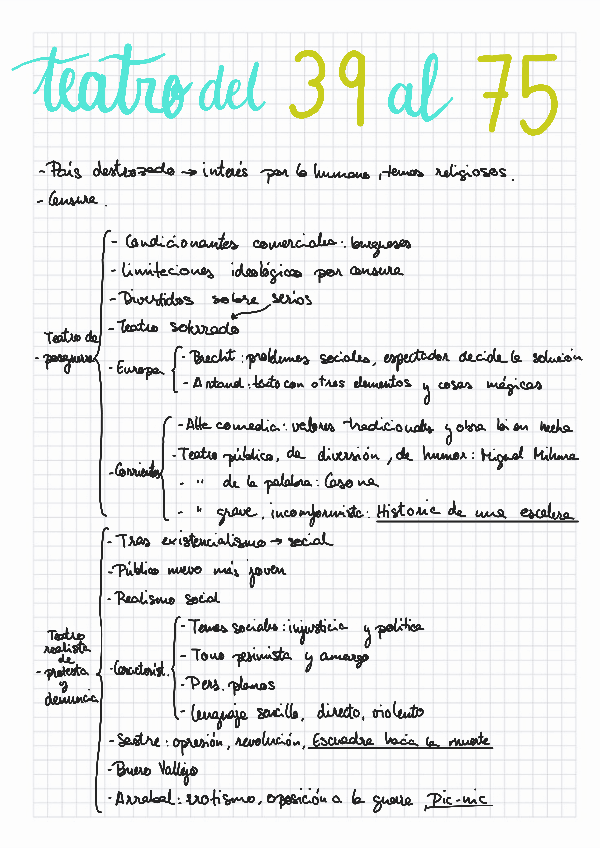 teatro del 39 al 75
- País destrozado → interés por lo humano, temas religiosos.
- Censura.
Teatro de
- posguerra
- Condicionantes comerciales: burgueses
- Limitaciones ideológicas por censura
- Divertidos sobre serios
- Teatro soterrado
- Europa
- Brecht: problemas sociales, espectador decide la solución
- Artaud: texto con otros elementos y cosas mágicas
- Corrientes
- Alta comedia: valores tradicionales y obra bien hecha
- Teatro público, de diversión, de humor: Miguel Mihura
- " de la palabra: Casona
- " grave, inconformista: Historia de una escalera
Teatro
realista
de
- protesta
y
denuncia
- Tras existencialismo → social
- Público nuevo más joven
- Realismo social
- Característ.
- Temas sociales: injusticia y política
- Tono pesimista y amargo
- Pers. planos
- Lenguaje sencillo, directo, violento
- Sastre: opresión, revolución, Escuadra hacia la muerte
- Buero Vallejo
- Arrabal: erotismo, oposición a la guerra Pic-nic